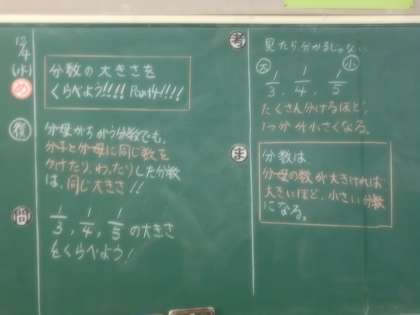 12/4
(水)
め
分数の大きさを
くらべよう!!!! Part4!!!!
復
分母がちがう分数でも、
分子と分母に同じ数を
かけたり、わったりした分数
は、同じ大きさ!!
問
1/3, 1/4, 1/5 の大きさ
をくらべよう!
考
見たら分かるじゃない
大 小
1/3, 1/4, 1/5
たくさん分けるほど、
1つ分が小さくなる。
ま
分数は
分母の数が大きければ
大きいほど、小さい分数
になる。